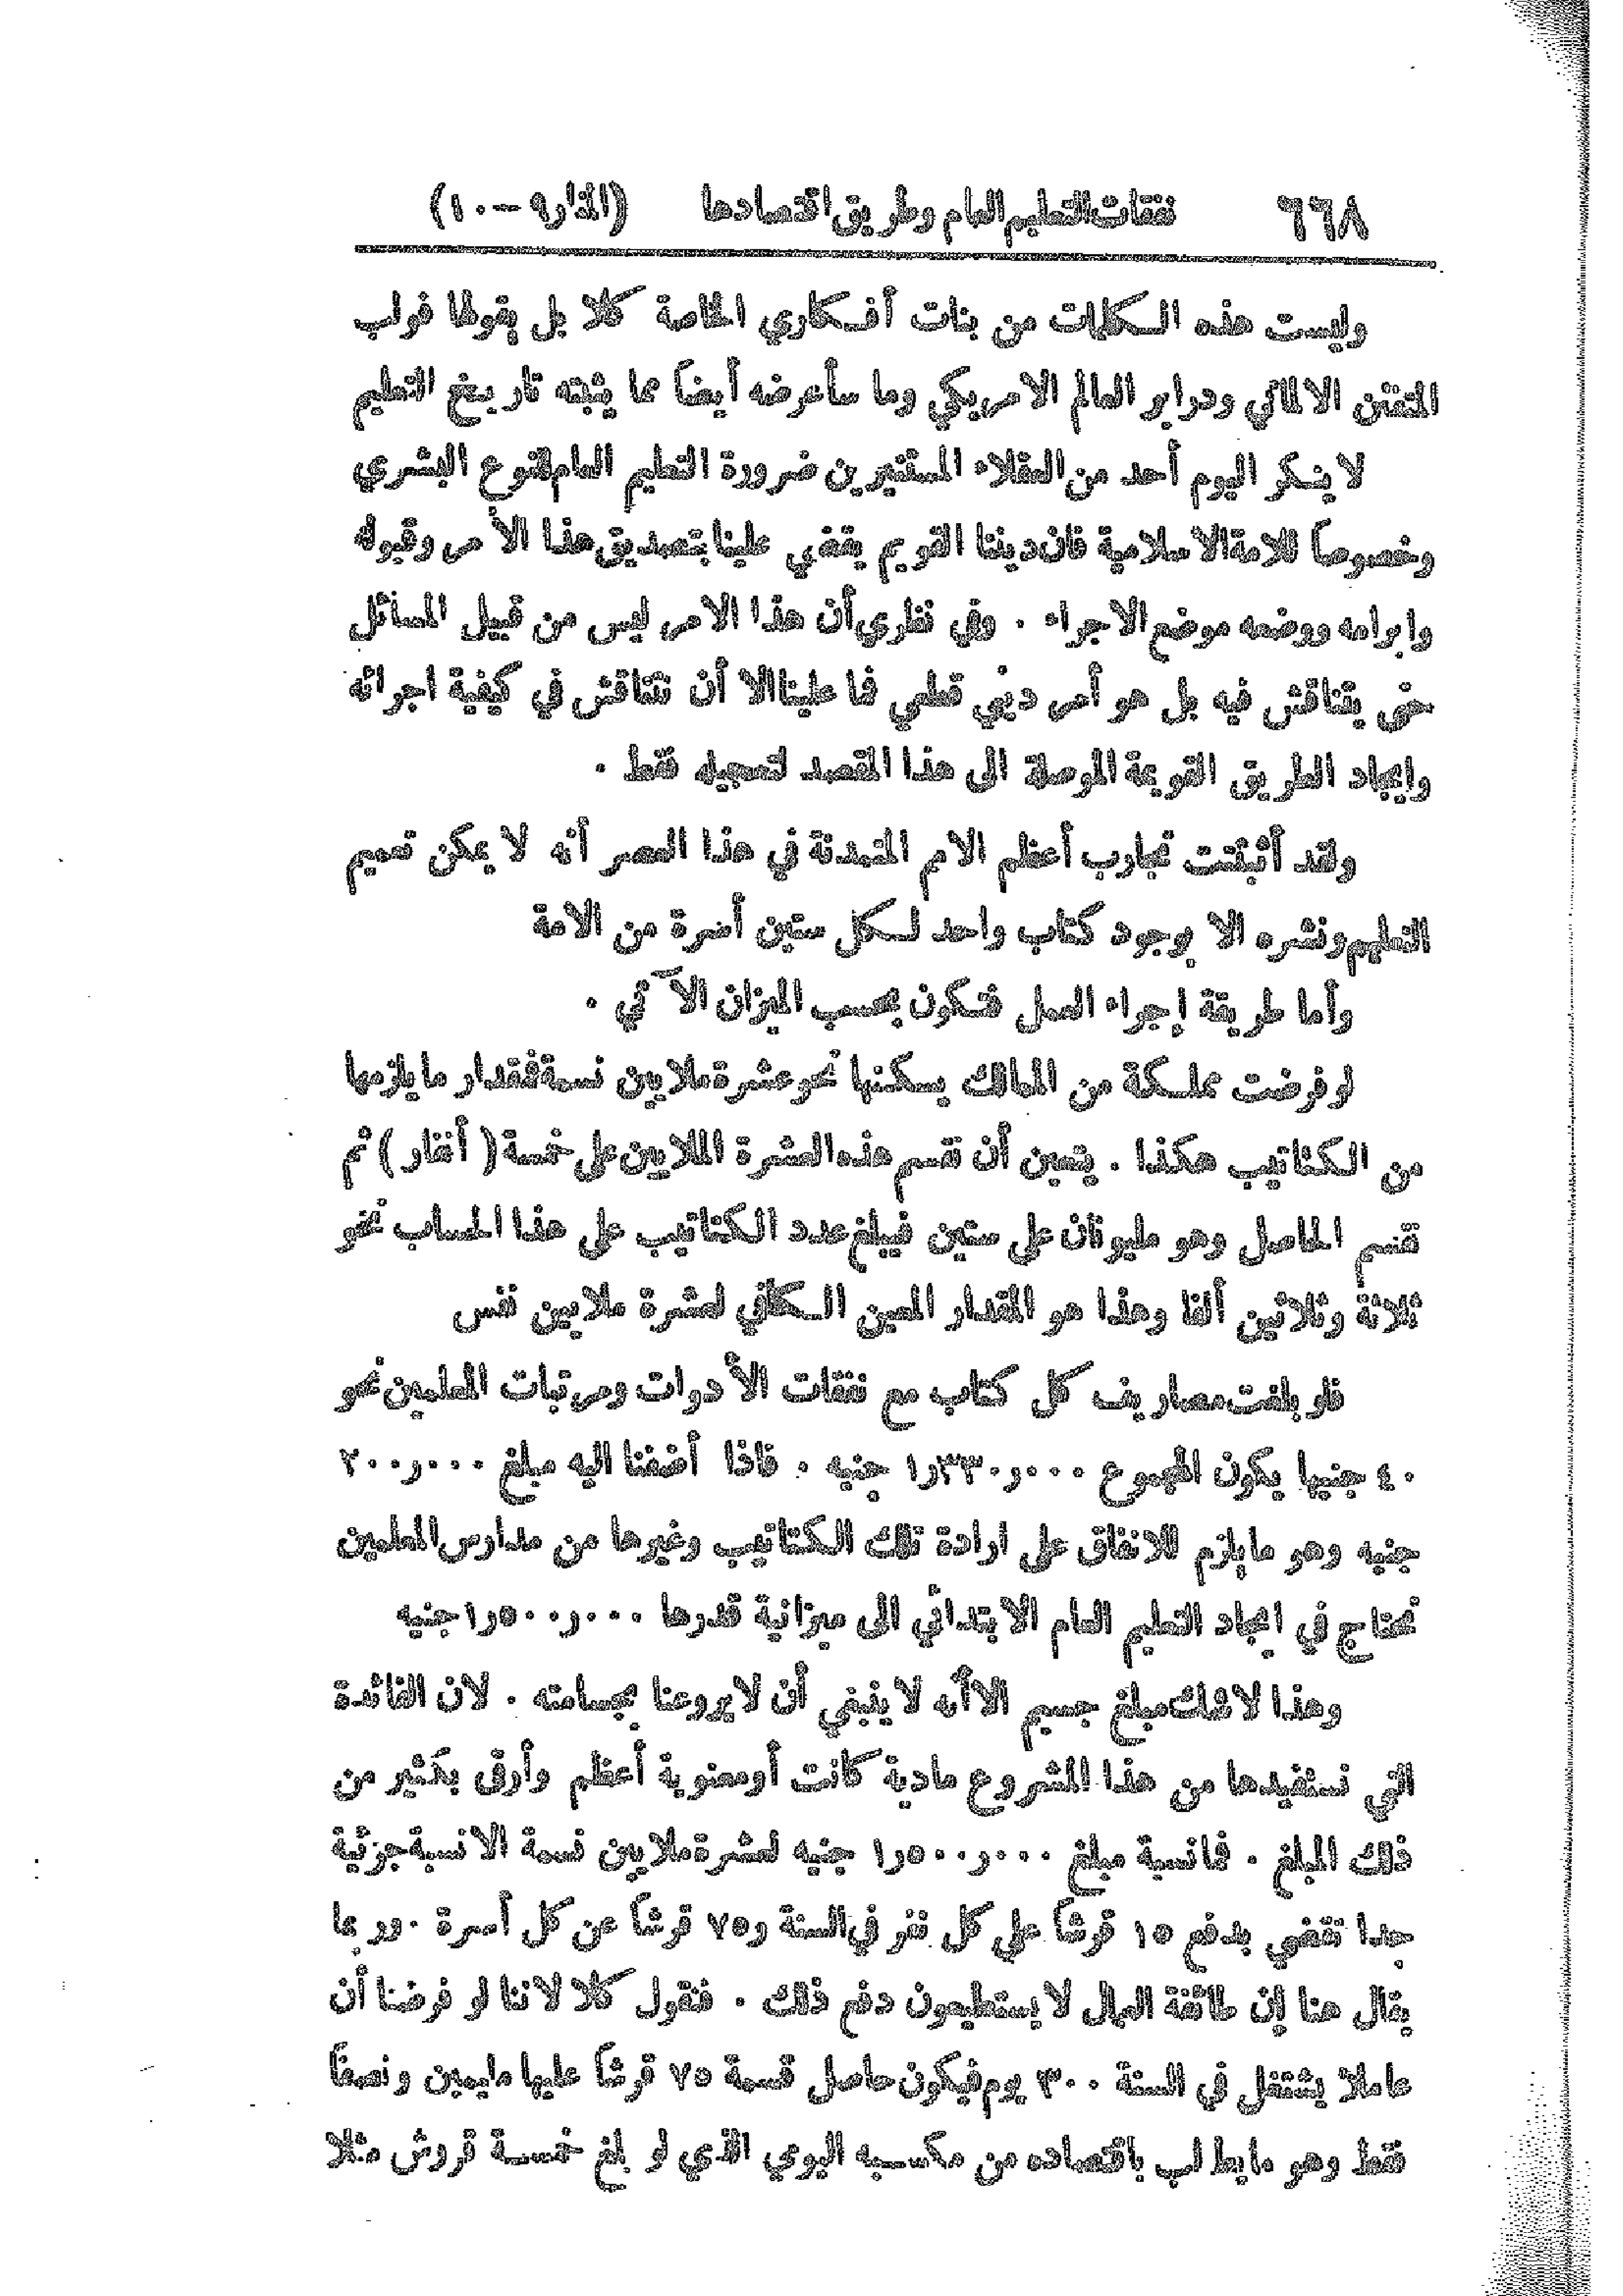 ٦٦٨ نفقات التعليم العام وطريق اقتصادها (المنار ٩ – ١٠)
وليست هذه الكلمات من بنات أفكاري الخاصة كلا بل يقولها فولب
المتفنن الالماني ودرابر العالم الامريكي وما سأعرضه أيضاً مما يثبته تاريخ التعليم
لا ينكر اليوم أحد من العقلاء المستنيرين ضرورة التعليم العام للنوع البشري
وخصوصاً للامة الاسلامية فان ديننا القويم يقضي علينا بتصديق هذا الأمر وقبوله
وابرامه ووضعه موضع الاجراء . وفي نظري أن هذا الامر ليس من قبيل المسائل
حتى يتناقش فيه بل هو أمر ديني قطعي فما علينا الا أن نتناقش في كيفية اجرائه
وايجاد الطريق القويمة الموصلة الى هذا المقصد لتعجيله فقط .
ولقد أثبتت تجارب أعظم الامم المتمدنة في هذا العصر أنه لا يمكن تعميم
التعليم ونشره الا بوجود كتاب واحد لكل ستين أسرة من الامة
وأما طريقة إجراء العمل فتكون بحسب الميزان الآتي .
لو فرضت مملكة من الممالك يسكنها نحو عشرة ملايين نسمة فمقدار ما يلزمها
من الكتاتيب هكذا . يتعين أن تقسم هذه العشرة الملايين على خمسة ( أنفار ) ثم
تقسم الحاصل وهو مليونان على ستين فيبلغ عدد الكتاتيب على هذا الحساب نحو
ثلاثة وثلاثين ألفا وهذا هو المقدار المعين الكافي لعشرة ملايين نفس
فلو بلغت مصاريف كل كتاب مع نفقات الأدوات ومرتبات المعلمين نحو
٤٠ جنيها يكون المجموع ١٫٣٣٠٫٠٠٠ جنيه . فاذا أضفنا اليه مبلغ ٢٠٠٫٠٠٠
جنيه وهو ما يلزم للانفاق على ارادة تلك الكتاتيب وغيرها من مدارس المعلمين
نحتاج في ايجاد التعليم العام الابتدائي الى ميزانية قدرها ١٫٥٠٠٫٠٠٠ جنيه
وهذا لاشك مبلغ جسيم الا أنه لا ينبغي أن لا يروعنا بجسامته . لان الفائدة
التي نستفيدها من هذا المشروع مادية كانت أو معنوية أعظم وأرقى بكثير من
ذلك المبلغ . فما نسبة مبلغ ١٫٥٠٠٫٠٠٠ جنيه لعشرة ملايين نسمة الا نسبة جزئية
جدا تقضي بدفع ١٥ قرشاً على كل نفر في السنة و٧٥ قرشاً عن كل أسرة . وربما
يقال هنا إن طائفة العمال لا يستطيعون دفع ذلك . فنقول كلا لاننا لو فرضنا أن
عاملا يشتغل في السنة ٣٠٠ يوم فيكون حاصل قسمة ٧٥ قرشاً عليها مليمين ونصفاً
فقط وهو ما يطالب باقتصاده من مكسبه اليومي الذي لو بلغ خمسة قروش مثلا